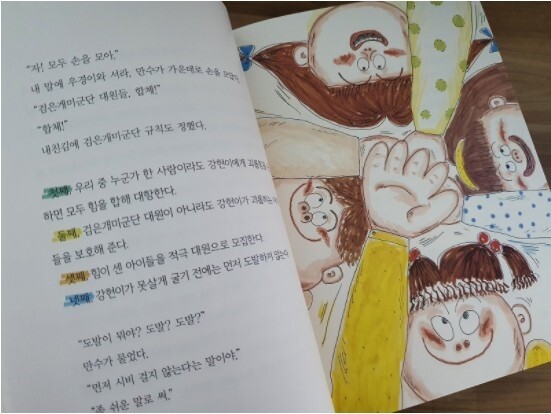 "자! 모두 손을 모아."
내 말에 우경이와 서라, 만수가 가운데로 손을 모았다.
"검은개미군단 대원들, 합체!"
"합체!"
내친김에 검은개미군단 규칙도 정했다.
첫째, 우리 중 누군가 한 사람이라도 강현이에게 괴롭힘을
하면 모두 힘을 합해 대항한다.
둘째, 검은개미군단 대원이 아니라도 강현이가 괴롭히는
들을 보호해 준다.
셋째, 힘이 센 아이들을 적극 대원으로 모집한다.
넷째, 강현이가 못살게 굴기 전에는 먼저 도발하지 않는다
"도발이 뭐야? 도발? 도발?"
만수가 물었다.
"먼저 시비 걸지 않는다는 말이야."
"좀 쉬운 말로 써."